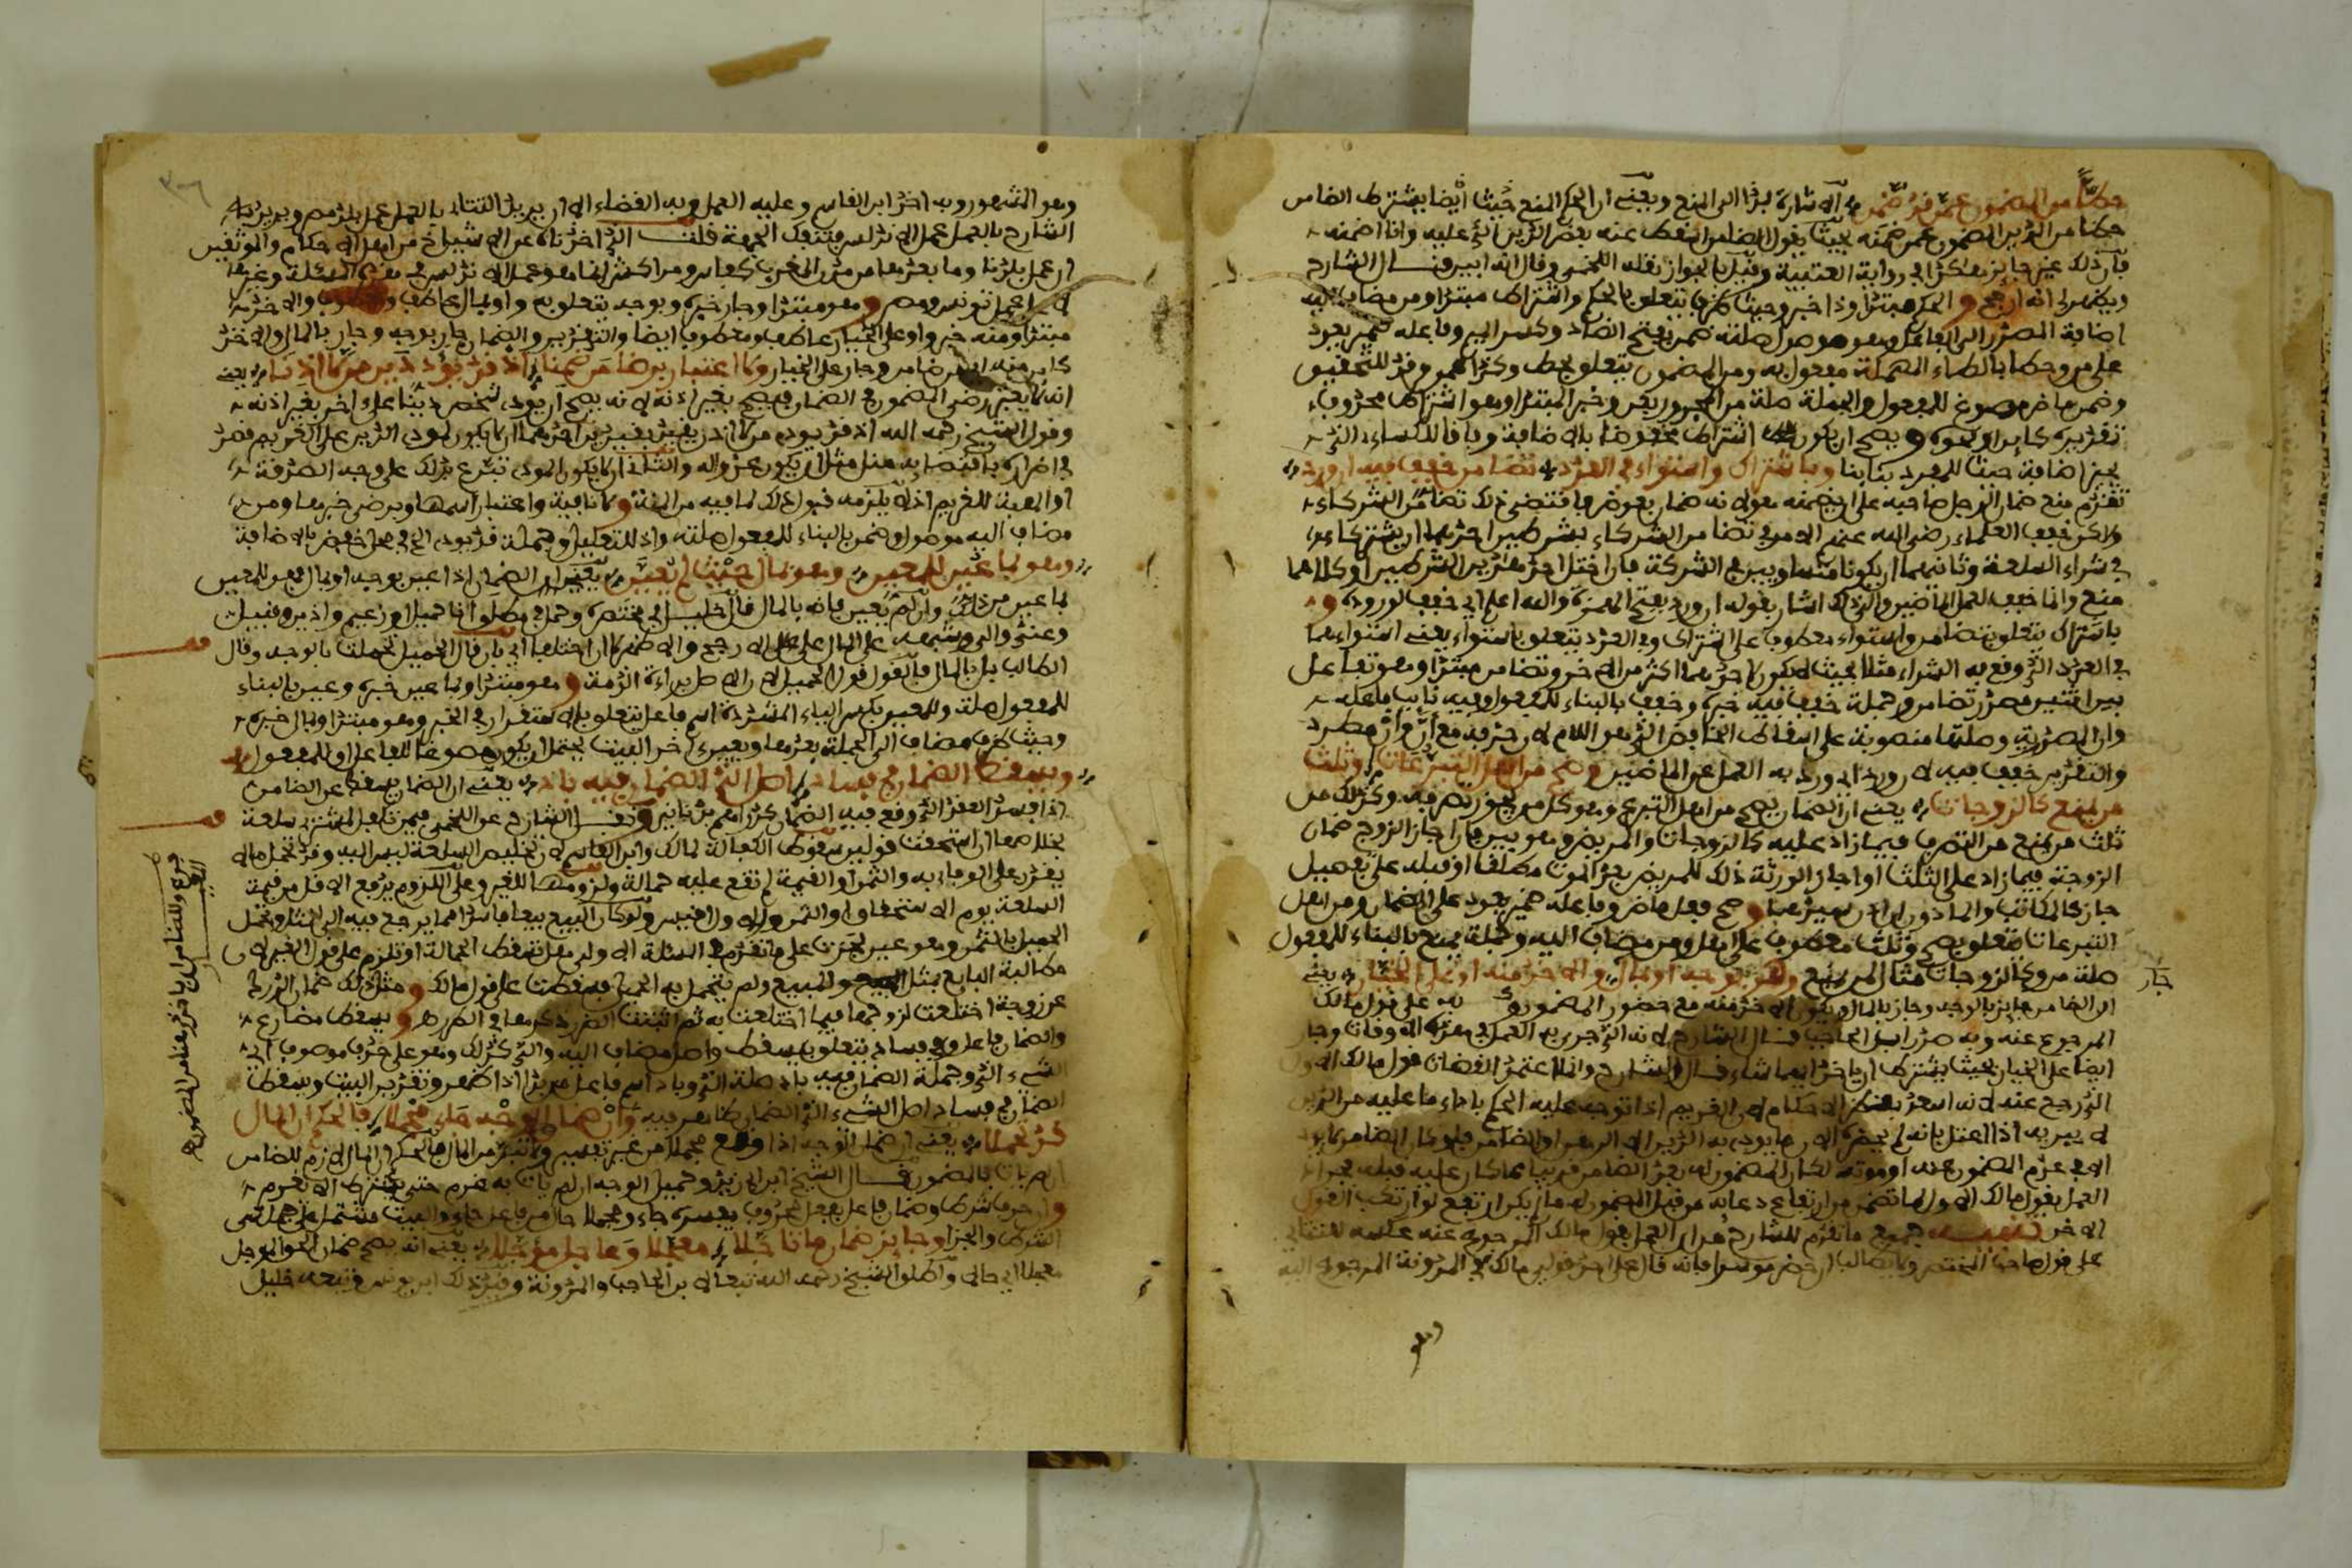 حطا من المضمون عمن قد ضمن الاشارة بذا الى المنع ويعني ان الحكم المنع حيث ايضا يشترط الضامن
حطا من الدين المضمون عمن ضمنه بحيث يقول الضامن اسقط عنه بعض الدين الذي عليه وانا اضمنه
فان ذلك غير جايز هكذا في رواية العتبية وقيل بالجواز نقله اللخمي وقال انه ابين قال الشارح
ويظهر لي انه ارجح والحكم مبتدا وذا خبر وحيث ظرف يتعلق بالحكم واشتراط مبتدا ومن مضاف اليه
اضافة المصدر الى الفاعل وهو موصول صلته ضمن بفتح الضاد وكسر الميم وفاعله ضمير يعود
على من وحطا بالطاء المهملة مفعول به ومن المضمون يتعلق بحط وكذا عمن وقد للتحقيق
وضمن ماض مصوغ للمفعول والجملة صلة من المجرور بعن وخبر المبتدا وهو اشتراط محذوف
تقديره كاين او نحوه ويصح ان يكون اشتراط مخفوضا بالاضافة وفاقا للكساءي الذي
يجيز اضافة حيث للمفرد بنابنا وباشتراك واستواء في العدد تضامن خفف فيه ان ورد
تقدم منع ضمان الرجل صاحبه على ان يضمنه هو لانه ضمان بعوض فاقتضى ذلك تضامن الشركاء
ولاكن خفف العلماء رضي الله عنهم الامر في تضامن الشركاء بشرطين احدهما ان يشتركا
في شراء السلعة وثانيهما ان يكونا متساويين في الشركة فان اختل احد هذين الشرطين او كلاهما
منع وانما خفف لعمل الماضين والى ذلك اشار بقوله ان ورد بفتح الهمزة والله اعلم اي خفف لوروده و
باشتراك يتعلق بتضامن واستواء معطوف على اشتراك وفي العدد يتعلق باستواء يعني استواءهما
في العدد الذي وقع به الشراء مثلا بحيث لا يكون احدهما اكثر من الاخر وتضامن مبتدا وهو تفاعل
بين اثنين مصدر تضامن وجملة خفف فيه خبره وخفف بالبناء للمفعول وفيه نايب فاعله
وان المصدرية وصلتها منصوبة على اسقاط الخافض الذي هو اللام لان حذفه مع ان وان مطرد
والتقدير خفف فيه لان ورد اي ورد به العمل عن الماضين وصح من اهل التبرعات وثلث
من يمنع كالزوجات يعني ان الضمان يصح من اهل التبرع وهو كل من يجوز تصرفه وكذلك من
ثلث من يمنع من التصرف فيما زاد عليه كالزوجات والمريض وهو بين فان اجاز الزوج ضمان
الزوجة فيما زاد على الثلث او اجاز الورثة ذلك للمريض بعد الموت مطلقا او قبله على تفصيل
جاز كالمكاتب والماذون ان اذن سيدهما وصح فعل ماض وفاعله ضمير يعود على الضمان ومن اهل
التبرعات يتعلق بصح وثلث معطوف على اهل ومن مضاف اليه وجملة يمنع بالبناء للمفعول
صلة من وكالزوجات مثال لمن يمنع وهو بوجه او بمال والاخذ منه او على الخيار يعني
ان الضامن جايز بالوجه وجاز بالمال ويكون الاخذ منه مع حضور المضمون به على قول مالك
جاز
المرجوع عنه وبه صدر ابن الحاجب قال الشارح لانه الذي جرى به العمل في هذه الاوقات وجاز
ايضا على الخيار بحيث يشترط ان ياخذ ايهما شاء قال الشارح وانما اعتمد القضاة قول مالك الاول
الذي رجع عنه لانه اسعد بتنفيذ الاحكام لان الغريم اذا توجه عليه الحكم باداء ما عليه من الدين
لا يبريه اذا اعتل بانه لم يحضره الان ما يودي به الدين الا الرهن او الضامن فلو كان الضامن لا يودي
الا في عدم المضمون عنه او موته لكان المضمون له بعد الضامن قريبا مما كان عليه قبله فجرى
العمل بقول مالك الاول لما تضمن من ارتفاع دعاية من قبل المضمون له ما لم يكن ارتفع لو ارتكب القول
الاخر تنبيه جميع ما تقدم للشارح من ان العمل بقول مالك المرجوع عنه عكسه للتتائي
على قول صاحب المختصر ولا يطالب ان حضر موسرا فانه قال على احد قولي مالك في المدونة المرجوع اليه
وهو المشهور وبه اخذ ابن القاسم وعليه العمل وبه القضاء الا ان يريد التتاءي بالعمل عمل بلده مصر ويريد
الشارح بالعمل عمل الاندلس فتنفك الجهة قلت الذي اخذناه عن الاشياخ من اهل الاحكام والموثقين
ان عمل بلدنا وما بعدها من مدن المغرب كفاس ومراكش انما هو عمل الاندلس في هذه المسئلة وغيرها
لا عمل تونس ومصر وهو مبتدا وجاز خبره وبوجه يتعلق به او بمال عاطف ومعطوف والاخذ
مبتدا ومنه خبر او على الخيار عاطف ومعطوف ايضا والتقدير والضمان جاز بوجه وجاز بالمال والاخذ
كاين منه اي من الضامن وجاز على الخيار ولا اعتبار برضا من ضمنا اذ قد يؤدى دين من لا اذنا يعني
انه لا يعتبر رضى المضمون في الضمان فيصح بغير اذنه لانه يصح ان يودي شخص دينا على اخر بغير اذنه
وقول الشيخ رحمه الله اذ قد يودى من لا اذن يقيد بقيدين احدهما ان لا يكون المودي الدين على الغريم قصد
في اضراره باقتضايه منه مثل ان يكون عدوا له والثاني ان لا يكون المودي تبرع بذلك على وجه الصدقة
او الهبة للغريم اذ لا يلزمه قبول ذلك لما فيه من المنة ولا نافية واعتبار اسمها وبرضى خبرها ومن
مضاف اليه موصول وضمن بالبناء للمفعول صلته واذ للتعليل وجملة قد يودى الخ في محل خفض بالاضافة
وهو بما عين للمعين وهو بمال حيث لم يعين يعني ان الضمان اذا عين بوجه او بمال فهو للمعين
بما عين من ذلك وان لم يعين فانه بالمال قال خليل في مختصره وحمل في مطلق انا حميل او زعيم واذين وقبيل
وعندي والي وشبهه على المال على الارجح والاظهر لا ان اختلفا اي بان قال الحميل تحملت بالوجه وقال
قف
الطالب بل بالمال فالقول قول الحميل لان الاصل براءة الذمة وهو مبتدا وبما عين خبره وعين بالبناء
للمفعول صلة وللمعين بكسر الياء المشددة اسم فاعل يتعلق بالاستقرار في الخبر وهو مبتدا وبمال خبره
وحيث ظرف مضاف الى الجملة بعدها ويعين اخر البيت يحتمل ان يكون مصوغا للفاعل او للمفعول
ويسقط الضمان في فساد اصل الذي الضمان فيه باد يعني ان الضمان يسقط عن الضامن
اذا فسد العقد الذي وقع فيه الضمان كدراهم بدنانير ونقل الشارح عن اللخمي فيمن تكفل لمشتري سلعة
قف
بخلاصها ان استحقت قولين سقوط الكفالة لمالك وابن القاسم لان تخليص السلعة ليس اليه وقد تحمل ما لا
يقدر على الوفاء به والثمن او القيمة لم تقع عليه حمالة ولزومها للغير وعلى اللزوم يدفع الاقل من قيمة
السلعة يوم الاستحقاق او الثمن ولو كان البيع بيعا فاسدا فما يرجع فيه الى المثل وتحمل
الحميل بالثمن وهو عين تجرت على ما تقدم في المسئلة الاولى هل تسقط الحمالة او تلزم على قول الغير لان
مطالبة البايع بمثل المبيع ولم يتحمل به الحميل فسقطت على قول مالك ومثل ذلك ضمان الدرك
عن زوجة اختلعت لزوجها فيما اختلعت به ثم اثبتت الضرر ذكرهما في الطرر ويسقط مضارع
والضمان فاعل وفي فساد يتعلق بيسقط واصل مضاف اليه والذي كذلك وهو على حذف موصوف اي
الشيء الذي وجملة الضمان فيه باد صلة الذي وباد اسم فاعل من بدا اذا ظهر وتقدير البيت ويسقط
الضمان في فساد اصل الشيء الذي الضمان ظاهر فيه وان ضمان الوجه جاء مجملا فالحكم ان المال
قد تحملا يعني ان ضمان الوجه اذا وقع مجملا من غير تعيين ولا تبر من المال فالحكم ان المال لازم للضامن
ان لم يات بالمضمون قال الشيخ ابن ابي زيد وحميل الوجه ان لم يات به غرم حتى يشترط الا يغرم
وان حرف شرط وضمان فاعل بفعل محذوف يفسره جاء ومجملا حال من فاعل جاء والبيت مشتمل على جملتي
الشرط والجزا وجايز ضمان ما تاجلا معجلا وعاجل مؤجلا يعني انه يصح ضمان الحق الموجل
معجلا اي حالا واطلق الشيخ رحمه الله تبعا لابن الحاجب والمدونة وقيد ذلك ابن يونس وتبعه خليل
فرع وللضامن ان ياخذ رهنا من المضمون